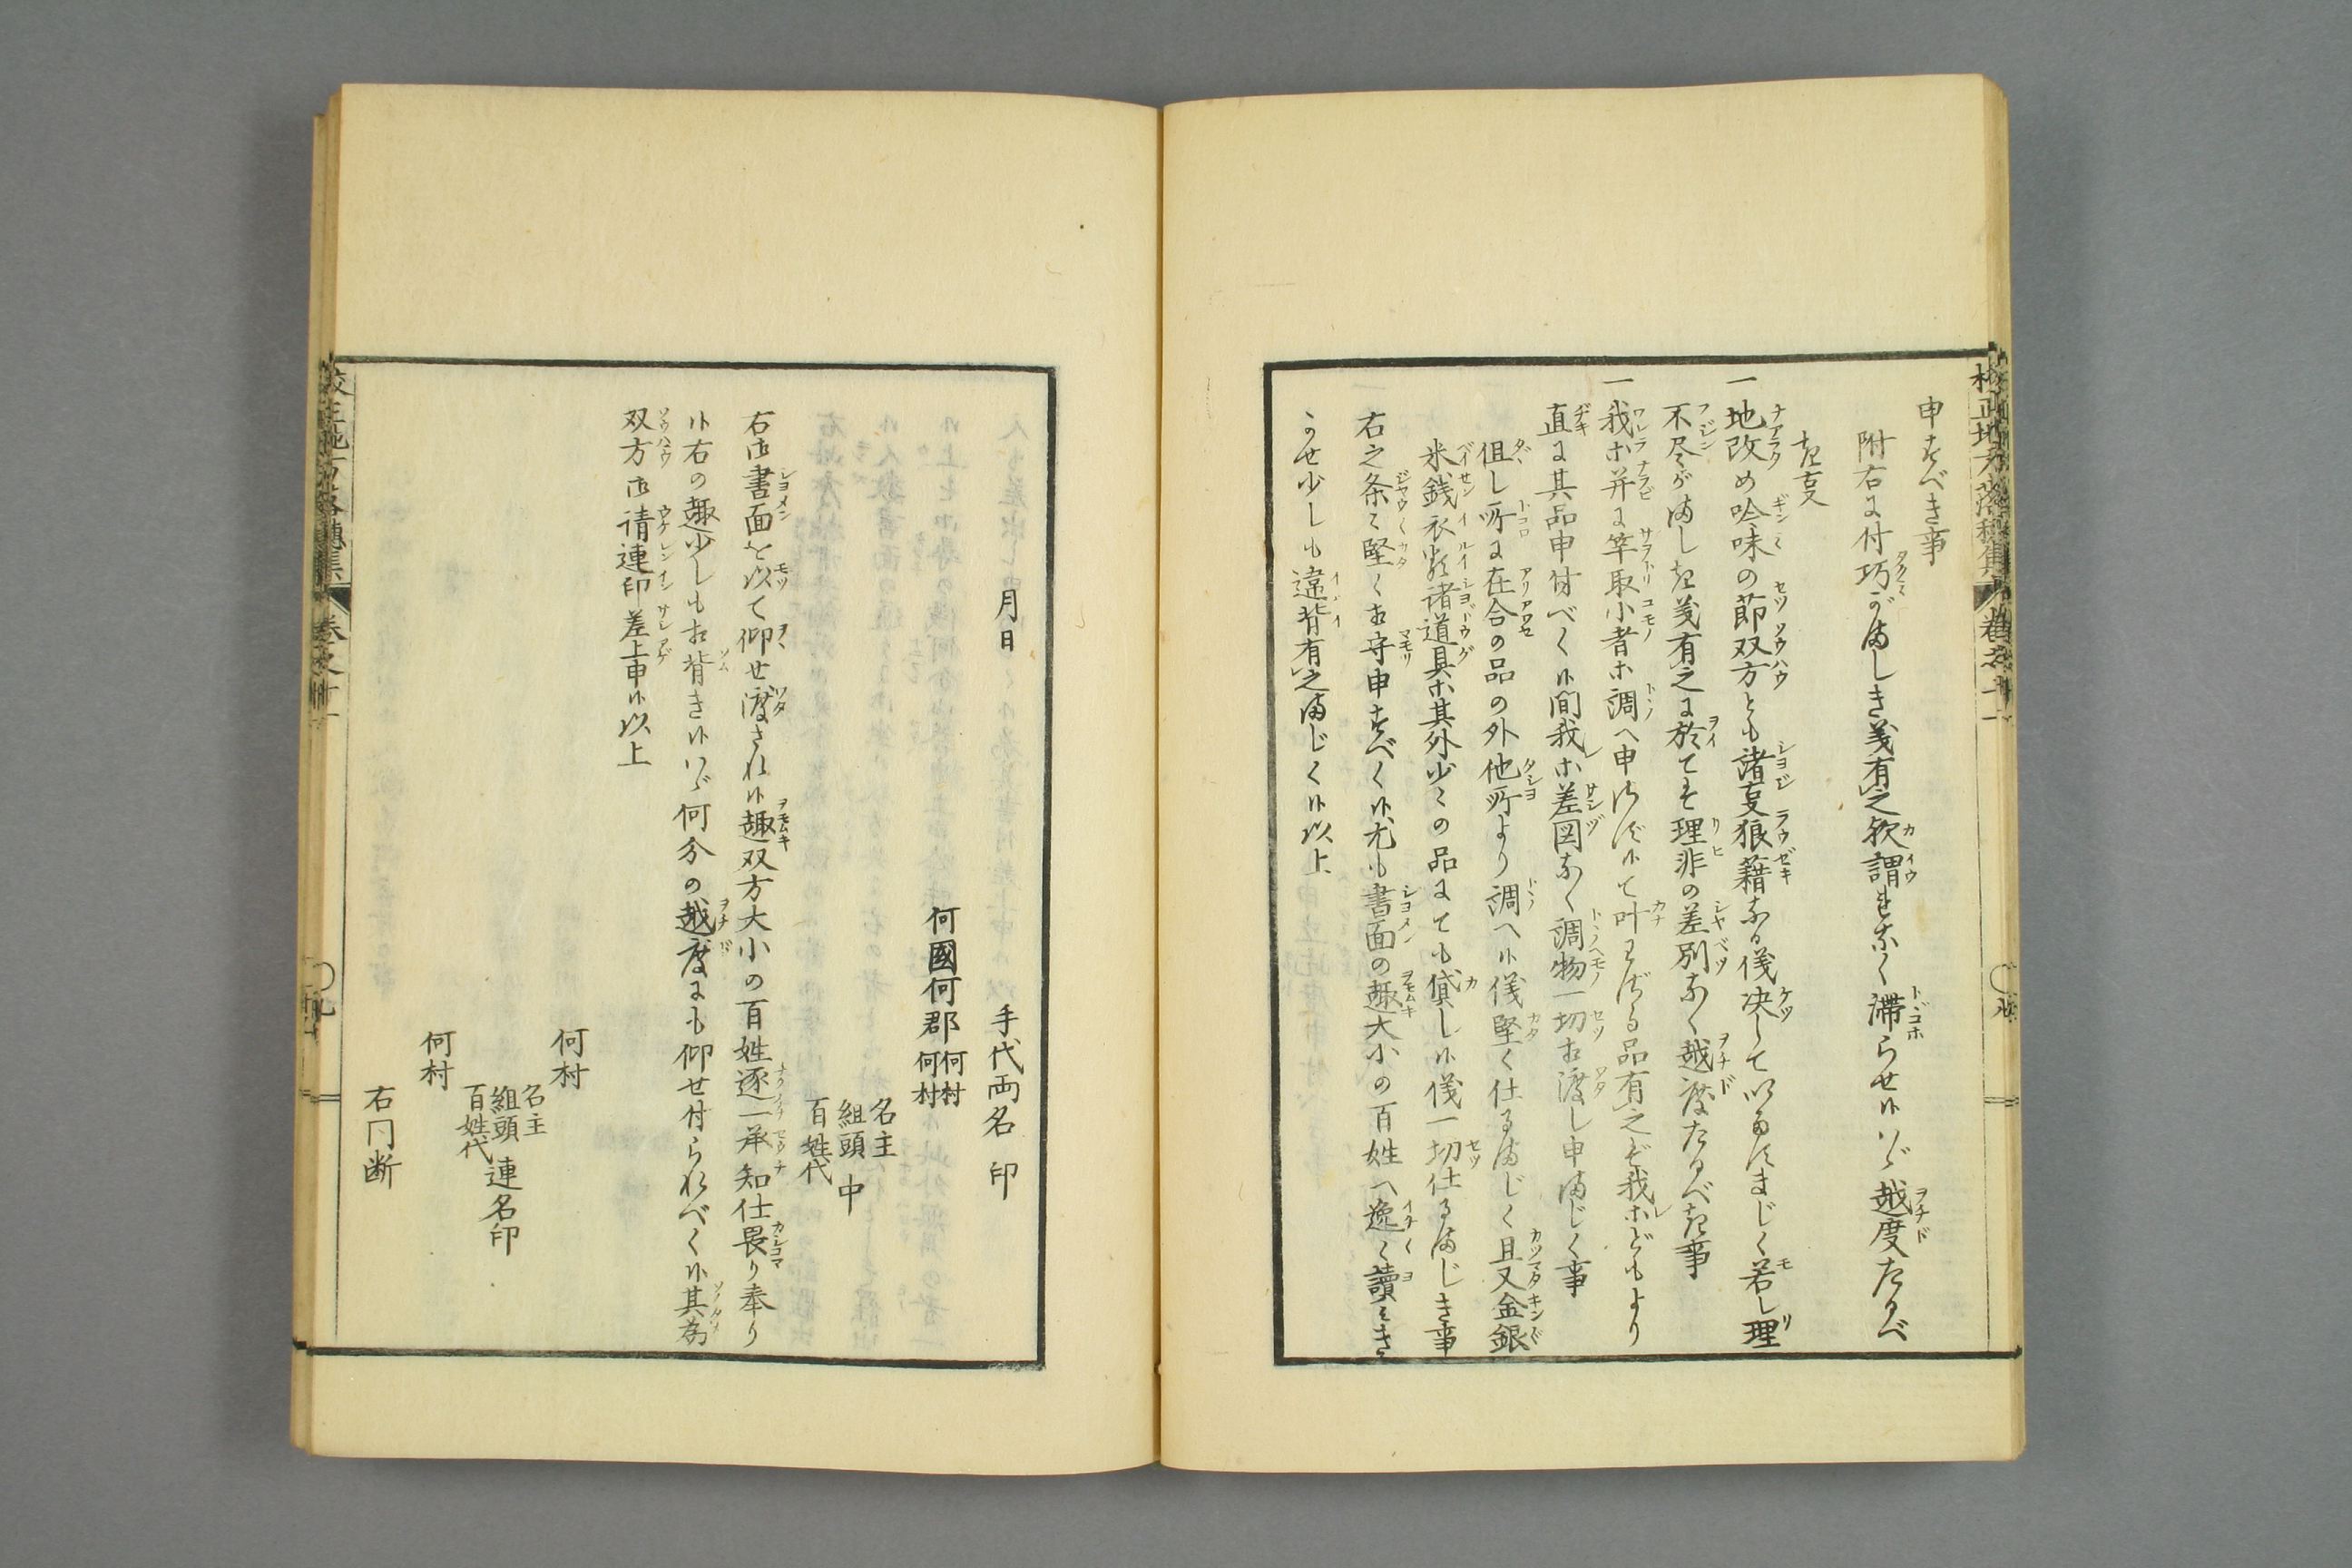 申すべき事
附右に付巧がましき義有之歟謂もなく滞らせ候ハゞ越度たるべ
き事
一地改め吟味の節双方とも諸事狼藉なる儀決して以たすまじく若し理
不尽がましき義有之に於てハ理非の差別なく越度たるべき事
一我等并に竿取小者等調へ申さずして叶ハざる品有之バ我等どもより
直に其品申付べく候間我等差図なく調物一切お渡し申まじく事
但し所に在合の品の外他所より調へ候儀堅く仕るまじく且又金銀
米銭衣類諸道具等其外少々の品にても貸し候儀一切仕るまじき事
右之条々堅くお守申すべく候尤も書面の趣大小の百姓へ逸々讀きき
かせ少しも違背有之まじく候以上
月日
手代両名 印
何國何郡 何村 何村
名主
組頭 中
百姓代
右御書面を以て仰せ渡され候趣双方大小の百姓逐一承知仕畏り奉り
候右の趣少しもお背き候ハゞ何分の越度にも仰せ付られべく候其為
双方御請連印差上申候以上
何村
名主
組頭 連名印
百姓代
何村
右同断